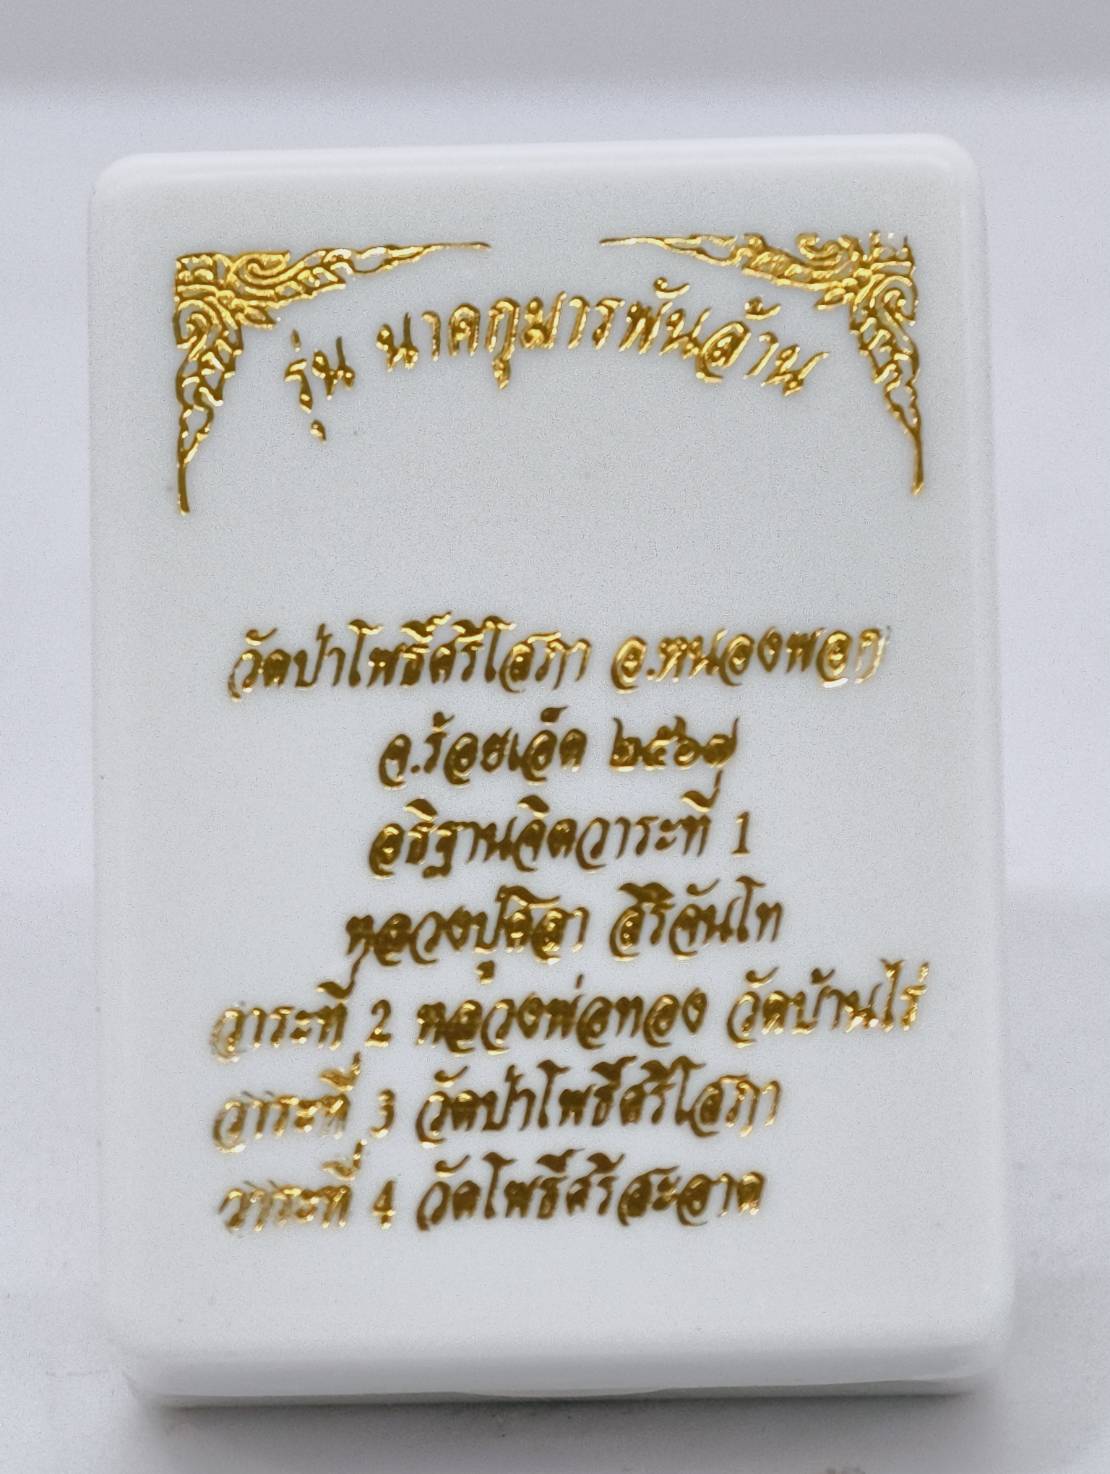 รุ่น นาคกุมารพันล้าน
วัดป่าโพธิ์ศรีโสภา อ.หนองพอก
จ.ร้อยเอ็ด ๒๕๖๗
อธิฐานจิตวาระที่ 1
หลวงปู่ศิลา สิริจันโท
วาระที่ 2 หลวงพ่อทอง วัดบ้านไร่
วาระที่ 3 วัดป่าโพธิ์ศรีโสภา
วาระที่ 4 วัดโพธิ์ศรีสะอาด